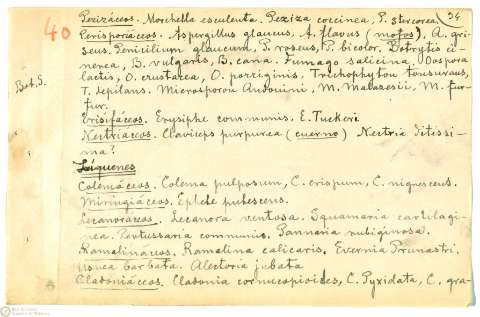 34
40
Pezizáceos. Morchella esculenta. Peziza coccinea, P. stercorea.
Perisporiáceos. Aspergillus glaucus, A. flavus (mofos), A. gri-
seus. Penicilium glaucum, P. roseus, P. bicolor. Botrytis ci-
nerea, B. vulgaris, B. cana. Fumago salicina, Oospora
Bot. 5.
lactis, O. crustacea, O. porriginis. Trichophyton tonsurans,
T. depilans. Microsporou Audouini, M. Malassesii, M. fur-
fur.
Erisifáceos. Erysiphe communis, E. Tuckeri.
Nectriáceos. Claviceps purpurea (cuerno) Nectria ditissi-
ma?
Líquenes
Colemáceos. Colema pulposum, C. crispum, C. nigrescens.
Miringiáceos. Ephebe pubescens.
Lecanoráceos. Lecanora ventosa. Squamaria cartilagi-
nea. Pertussaria communis. Pannaria rubiginosa.
Ramalináceos. Ramalina calicaris. Evernia Prunastri.
Usnea barbata. Alectoria jubata
Cladoniáceos. Cladonia cornucopioides, C. Pyxidata, C. gra-